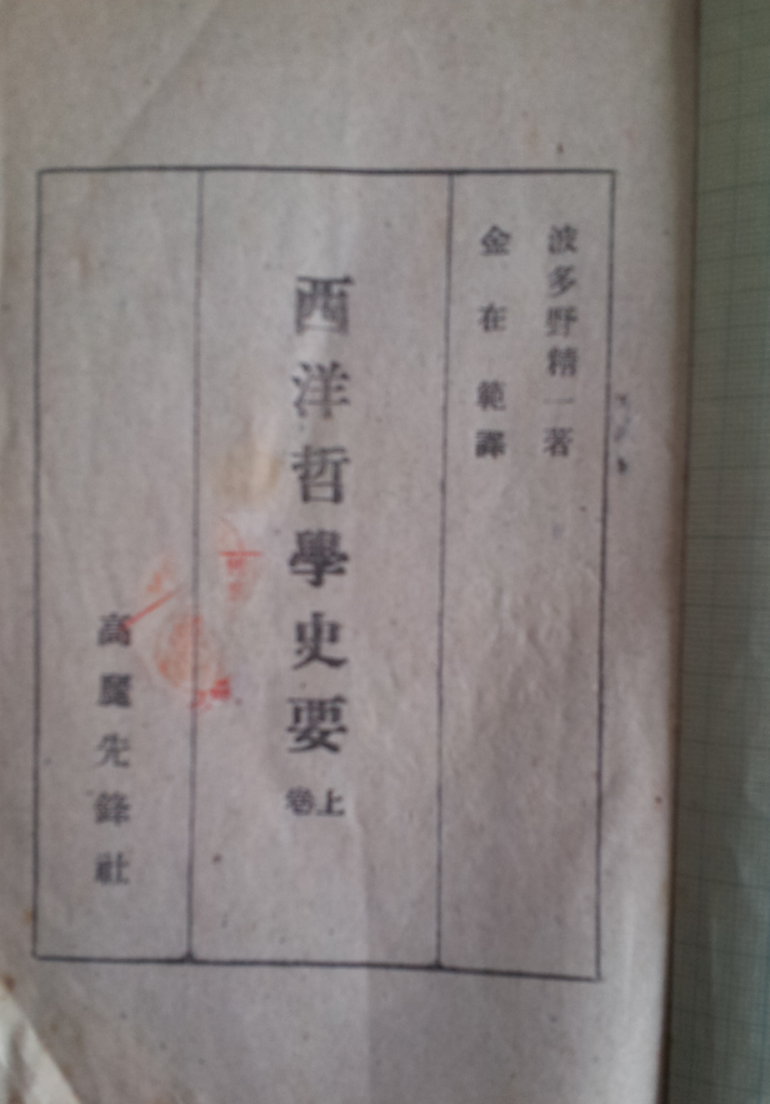 波多野精一著
金在範譯
西洋哲學史要
上卷
高麗先鋒社